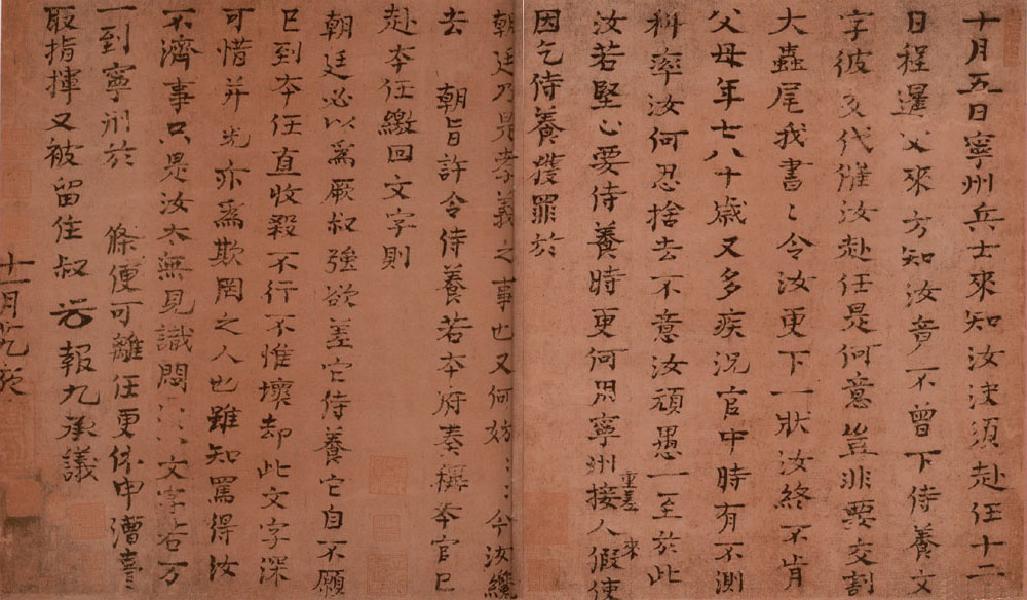 十月五日寧州兵士來知汝決須赴任十二
日程暹父來方知汝竟不曾下侍養文
字彼交代催汝赴任是何意豈非要交割
大蟲尾我書〻令汝更下一狀汝終不肯
父母年七八十歲又多疾況官中時有不測
科率汝何忍捨去不意汝頑愚一至於此
汝若堅心要侍養時更何用寧州重差接人來假使
因乞侍養獲罪於
朝廷乃是孝義之事也又何妨〻〻今汝纔
去 朝旨許令侍養若本府奏稱本官已
赴本任繳回文字則
朝廷必以為厥叔強欲差它侍養它自不願
已到本任直收殺不行不惟壞却此文字深
可惜并光亦為欺罔之人也雖知罵得汝
不濟事只是汝太無見識悶〻文字若万
一到寧州於 條便可離任更休申漕臺
取指揮又被留住叔光報九承議
十一月